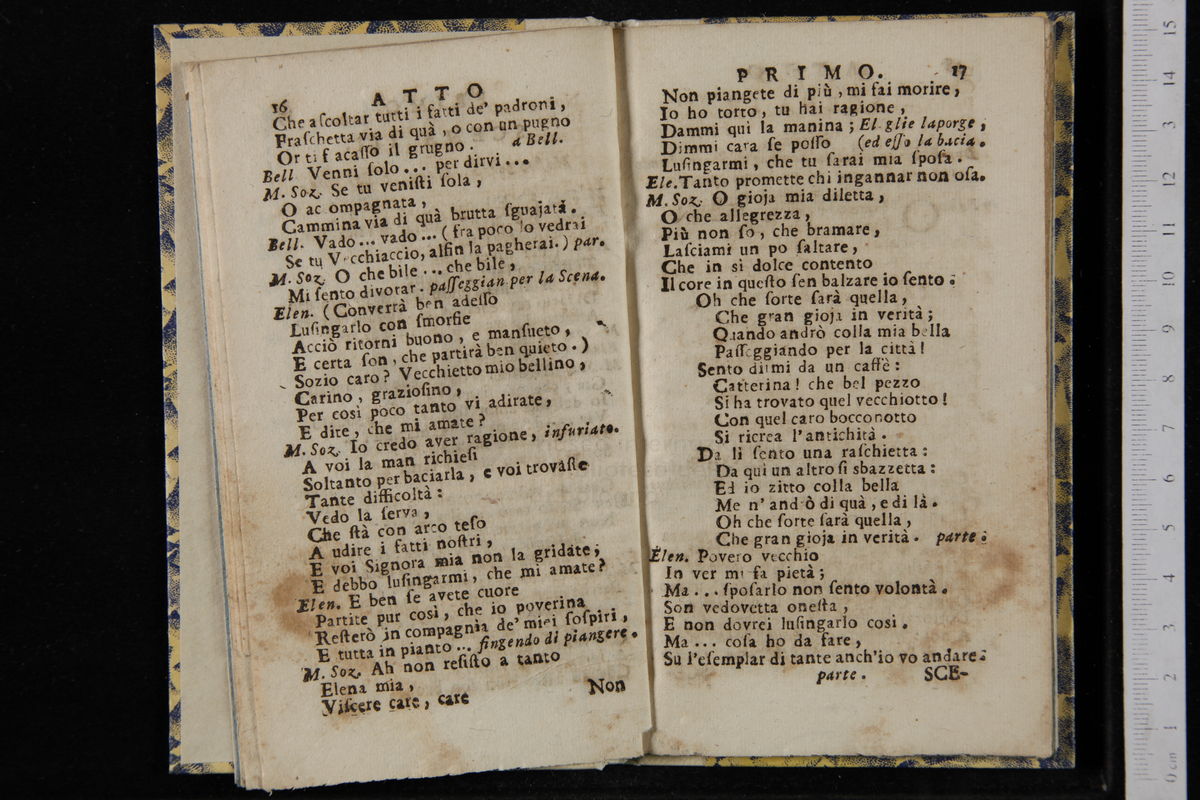 16 ATTO
Che aſcoltar tutti i fatti de' padroni,
Fraſchetta via di quà, o con un pugno
Or ti f acaſſo il grugno. a Bell.
Bell Venni ſolo... per dirvi...
M. Soz. Se tu veniſti ſola,
O ac ompagnata,
Cammina via di quà brutta ſguajata.
Bell. Vado... vado... (fra poco lo vedrai
Se tu Vecchiaccio, alfin la pagherai.) par.
M. Soz. O che bile... che bile,
Mi ſento divorar. paſſeggian per la Scena.
Elen. (Converrà ben adeſſo
Luſingarlo con ſmorfie
Acciò ritorni buono, e manſueto,
E certa ſon, che partirà ben quieto.)
Sozio caro? Vecchietto mio bellino,
Carino, grazioſino,
Per così poco tanto vi adirate,
E dite, che mi amate?
M. Soz. Io credo aver ragione, infuriato.
A voi la man richieſi
Soltanto per baciarla, e voi trovaſte
Tante difficoltà:
Vedo la ſerva,
Che ſtà con arco teſo
A udire i fatti noſtri,
E voi Signora mia non la gridate;
E debbo luſingarmi, che mi amate?
Elen. E ben ſe avete cuore
Partite pur così, che io poverina
Reſterò in compagnia de' miei ſoſpiri,
E tutta in pianto... fingendo di piangere.
M. Soz. Ah non reſiſto a tanto
Elena mia,
Viſcere care, care
Non
PRIMO. 17
Non piangete di più, mi fai morire,
Io ho torto, tu hai ragione,
Dammi quì la manina; El. glie la porge,
Dimmi cara ſe poſſo (ed eſſo la bacia.
Luſingarmi, che tu ſarai mia ſpoſa.
Ele. Tanto promette chi ingannar non oſa.
M. Soz. O gioja mia diletta,
O che allegrezza,
Più non ſo, che bramare,
Laſciami un po ſaltare,
Che in sì dolce contento
Il core in queſto ſen balzare io ſento.
Oh che ſorte ſarà quella,
Che gran gioja in verità;
Quando andrò colla mia bella
Paſſeggiando per la città!
Sento dirmi da un caffè:
Catterina! che bel pezzo
Si ha trovato quel vecchiotto!
Con quel caro bocconotto
Si ricrea l'antichità.
Da lì ſento una raſchietta:
Da qui un altro ſi sbazzetta:
Ed io zitto colla bella
Me n'andrò di quà, e di là.
Oh che ſorte ſarà quella,
Che gran gioja in verità. parte.
Elen. Povero vecchio
In ver mi fa pietà;
Ma... ſpoſarlo non ſento volontà.
Son vedovetta oneſta,
E non dovrei luſingarlo così.
Ma... coſa ho da fare,
Su l'eſemplar di tante anch'io vo andare.
parte. SCE-
0 cm 1 2 3 4 5 6 7 8 9 10 11 12 13 14 15